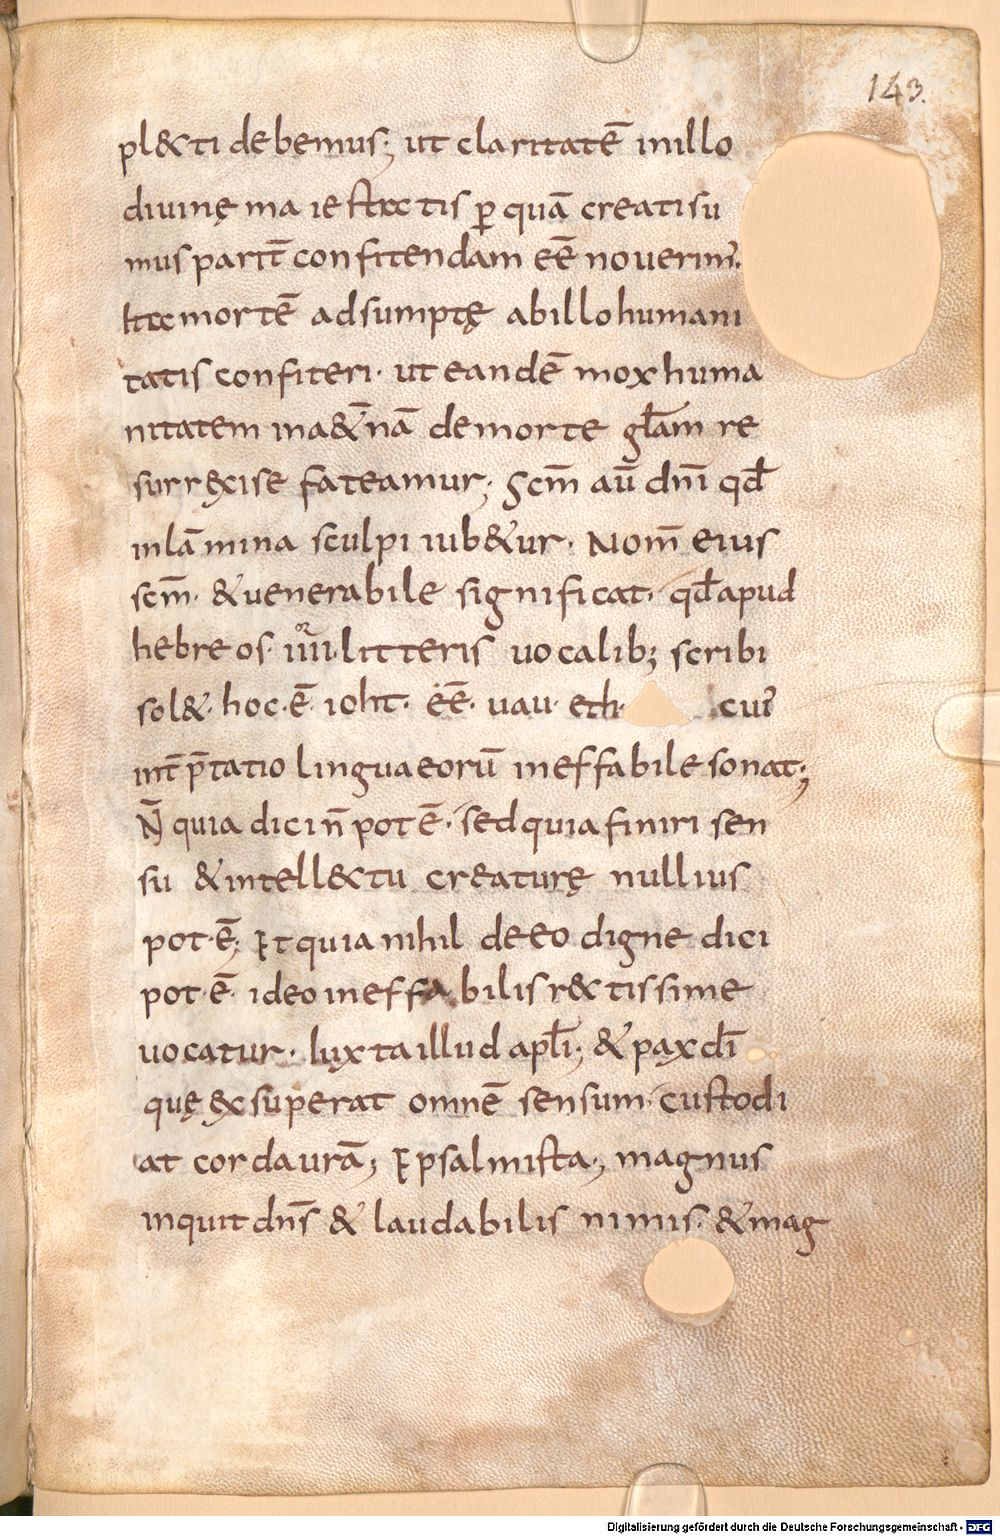 143.
pl&cti debemus; ut claritatē inillo
diuinę maiestatis ꝑ quā creatisu
mus parit̄ confitendam eē nouerim̄.
Itamortē adsumptę abillo humani
tatis confiteri. ut eandē mox huma
nitatem ina&̄nā demorte gl̄am re
surrexise fateamur; Scm̄ aū dn̄i qd̄
inlāmina sculpi iub&ur. Nom̄ eius
scm̄. & uenerabile significat. qd̄ apud
hebreos. iiii. litteris uocalib; scribi
sol&. hoc. ē. ioht. eē. uau. eth. cui
int̄p̄tatio linguaeorū ineffabile sonat;
N̄ quia dici n̄ pot ē. sed quia finiri sen
su & intell&ctu creaturę nullius
pot. ē; Et quia nihil deeo digne dici
pot. ē. ideo ineffabilis r&ctissime
uocatur. Iuxta illud apl̄i; & pax dī
quę exsuperat omnē sensum custodi
at corda urā; Et psalmista; magnus
inquit dn̄s & laudabilis nimis. & mag
Digitalisierung gefördert durch die Deutsche Forschungsgemeinschaft - DFG